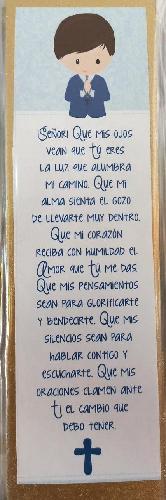 ¡Señor! Que mis ojos
vean que tú eres
la luz que alumbra
mi camino. Que mi
alma sienta el gozo
de llevarte muy dentro.
Que mi corazón
reciba con humildad el
Amor que tu me das.
Que mis pensamientos
sean para glorificarte
y bendecirte. Que mis
silencios sean para
hablar contigo y
escucharte. Que mis
oraciones clamen ante
ti el cambio que
debo tener.